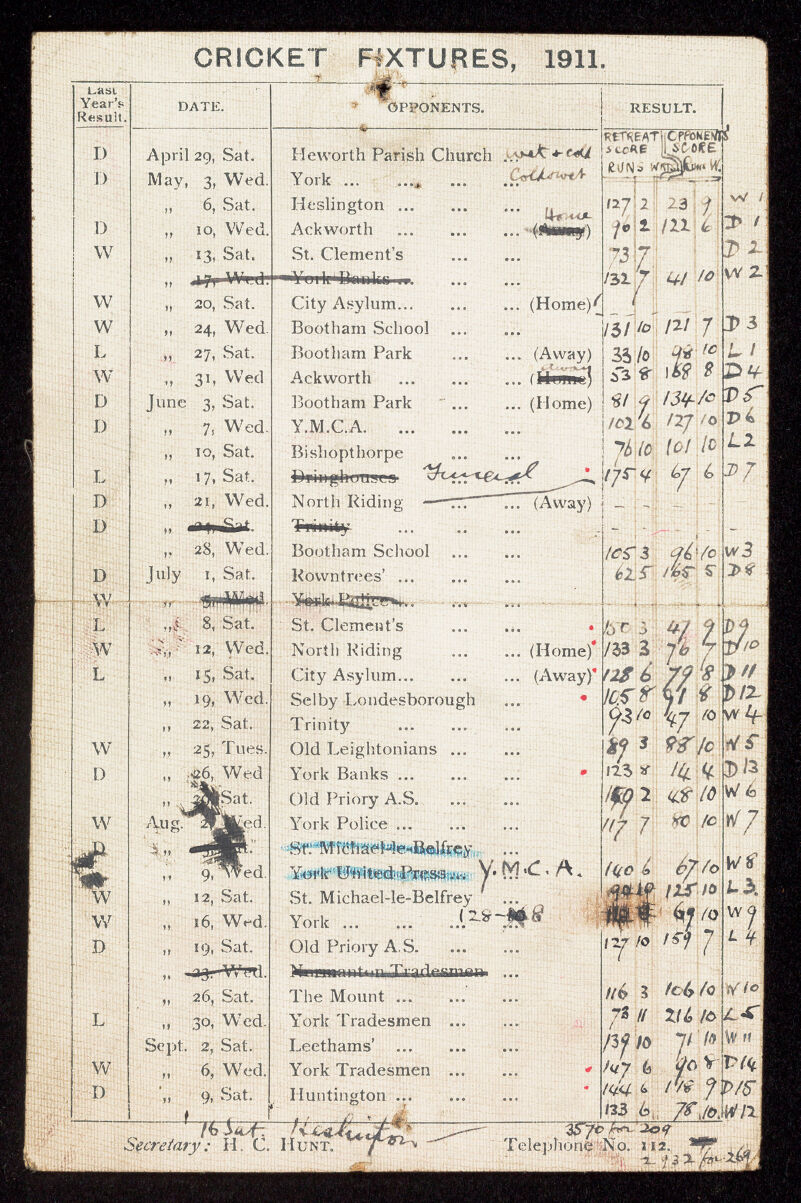 CRICKET FIXTURES, 1911.
Last Year's Result. DATE. OPPONENTS. RESULT.
RETREAT SCORE RUNS WKTS OPPONENTS SCORE RUNS W.
D April 29, Sat. Heworth Parish Church ... wet & cold
D May, 3, Wed. York ... ... ... ... Cold & wet
„ 6, Sat. Heslington ... ... ... 127 2 23 9 W 1
D „ 10, Wed. Ackworth ... ... ... (Away) Home 90 2 122 6 D 1
W „ 13, Sat. St. Clement's ... ... 73 7 D 2
„ 17, Wed. York Banks ... ... ... 132 7 41 10 W 2
W „ 20, Sat. City Asylum... ... ... (Home)
W „ 24, Wed. Bootham School ... ... 131 10 121 7 D 3
L „ 27, Sat. Bootham Park ... ... (Away) 33 10 98 10 L 1
W „ 31, Wed Ackworth ... ... ... (Home) away 53 8 168 8 D 4
D June 3, Sat. Bootham Park ... ... (Home) 81 9 134 10 D 5
D „ 7, Wed. Y.M.C.A. ... ... ... 102 6 127 10 D 6
„ 10, Sat. Bishopthorpe ... ... 76 10 101 10 L 2
L „ 17, Sat. Dringhouses Funeral 175 4 67 6 D 7
D „ 21, Wed. North Riding ... ... (Away) - - - -
D „ 24, Sat. Trinity ... .. ... - - -
„ 28, Wed. Bootham School ... ... 105 3 96 10 W 3
D July 1, Sat. Rowntrees' ... ... ... 62 5 165 5 D 8
W „ 5, Wed York Police... ... ...
L „ 8, Sat. St. Clement's ... ... 150 3 47 9 D 9
W „ 12, Wed. North Riding ... (Home) 133 3 76 7 D 10
L „ 15, Sat. City Asylum... ... ... (Away) 128 6 79 8 D 11
„ 19, Wed. Selby Londesborough ... 105 8 91 8 D 12
„ 22, Sat. Trinity ... ... ... 93 10 47 10 W 4
W „ 25, Tues. Old Leightonians ... ... 89 3 88 10 W 5
D „ 26, Wed York Banks ... ... ... 123 8 14 4 D 13
„ Sat. Old Priory A.S. ... ... 2 48 10 W 6
W Aug. 2, Wed. York Police ... ... ... 117 7 80 10 W 7
D „ St. Michael-le-Belfrey ...
„ 9, Wed. York United Press... ... Y.M.C.A. 140 6 67 10 W 8
W „ 12, Sat. St. Michael-le-Belfrey ... 90 10 125 10 L 3.
W „ 16, Wed. York ... ... ... ... 128- 8 69 10 W 9
D „ 19, Sat. Old Priory A.S. ... ... 127 10 159 7 L 4
„ 23, Wed. Normanton Tradesmen ...
„ 26, Sat. The Mount ... ... ... 116 3 106 10 W 10
L „ 30, Wed. York Tradesmen ... ... 73 11 216 10 L 5
Sept. 2, Sat. Leethams' ... ... ... 139 10 71 10 W 11
W „ 6, Wed. York Tradesmen ... ... 147 6 90 8 D 14
D „ 9, Sat. Huntington ... ... ... 144 6 118 9 D 15
133 6 78 10 W 12
16 Sat. Heslington 3570 for 209
Secretary: H. C. HUNT. Telephone No. 112.
2932 for 269